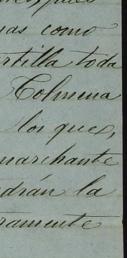 nas como
rtilla toda
Colmena
los ques,
marchante
drán la
ramente